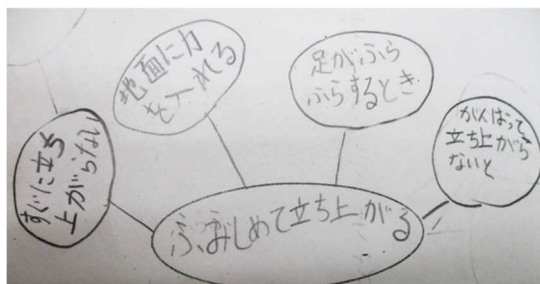 すぐに立ち
上がらない
地面に力
を入れる
足がふら
ふらするとき
がんばって
立ち上がら
ないと
ふみしめて立ち上がる